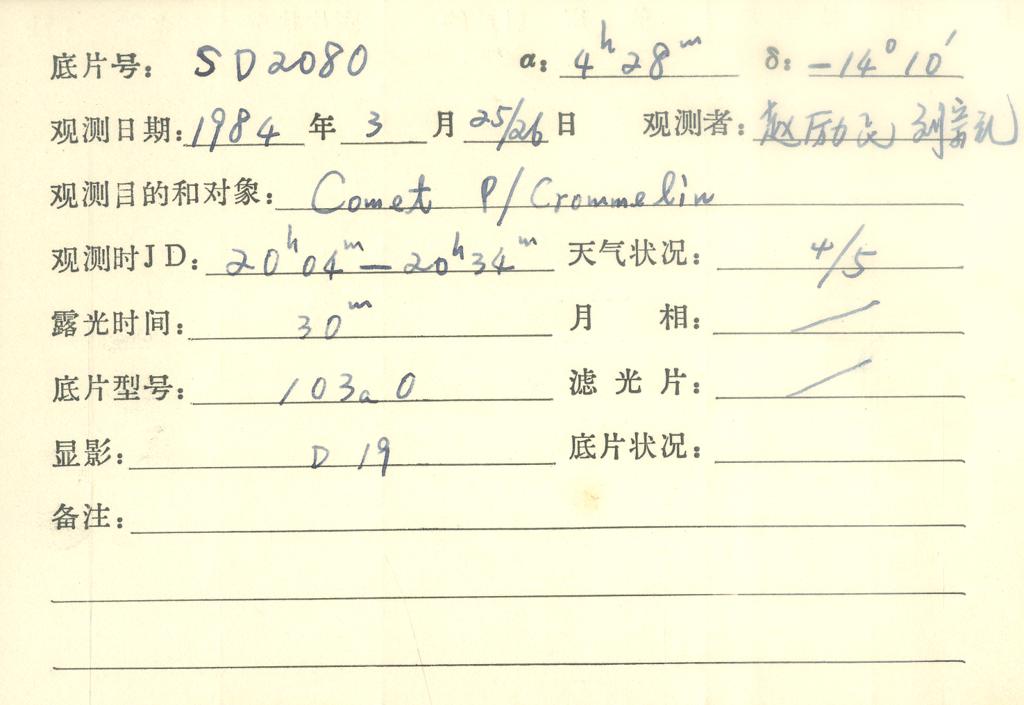 底片号: SD2080 α: 4ʰ28ᵐ δ: -14°10′
观测日期: 1984 年 3 月 25/26 日 观测者: 赵励民 刘
观测目的和对象: Comet P/Crommelin
观测时JD: 20ʰ04ᵐ—20ʰ34ᵐ 天气状况: 4/5
露光时间: 30ᵐ 月 相: /
底片型号: 103a0 滤光片: /
显影: D 19 底片状况:
备注: